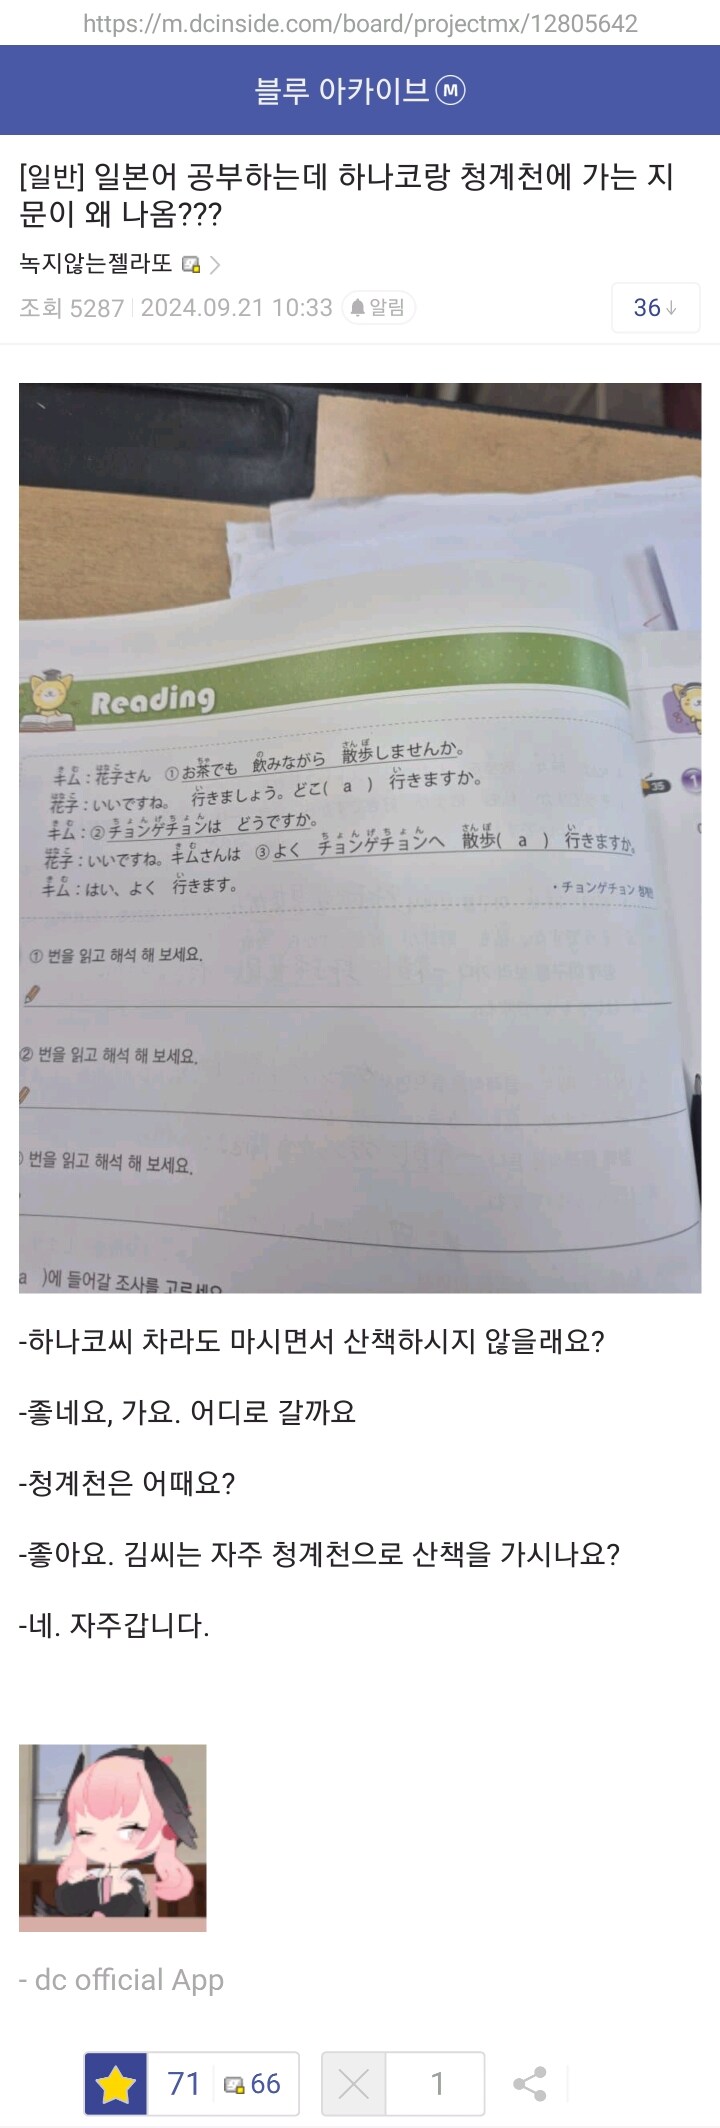 https://m.dcinside.com/board/projectmx/12805642
블루 아카이브 M
[일반] 일본어 공부하는데 하나코랑 청계천에 가는 지
문이 왜 나옴???
녹지않는젤라또
조회 5287 2024.09.21 10:33 알림
36↓
Reading
キム : 花子さん ①お茶でも 飲みながら 散歩しませんか。
花子 : いいですね。 行きましょう。どこ( a ) 行きますか。
キム : ②チョンゲチョンは どうですか。
花子 : いいですね。キムさんは ③よく チョンゲチョンへ 散歩( a ) 行きますか。
キム : はい、よく 行きます。
・チョンゲチョン 청계천
35
1
① 번을 읽고 해석 해 보세요.
② 번을 읽고 해석 해 보세요.
번을 읽고 해석 해 보세요.
a )에 들어갈 조사를 고르세요
-하나코씨 차라도 마시면서 산책하시지 않을래요?
-좋네요, 가요. 어디로 갈까요
-청계천은 어때요?
-좋아요. 김씨는 자주 청계천으로 산책을 가시나요?
-네. 자주갑니다.
- dc official App
71 66 1